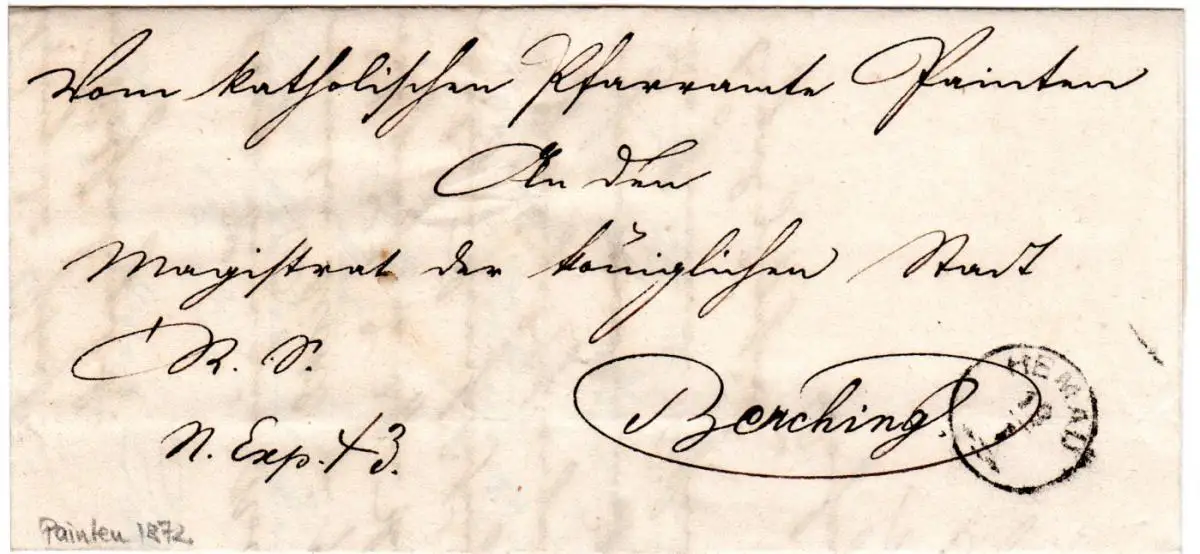 Vom katholischen Pfarramte Painten
An den
Magistrat der königlichen Stadt
R. S.
Berching.
HEMAU
N. Exp. 43.
Painten 1872.